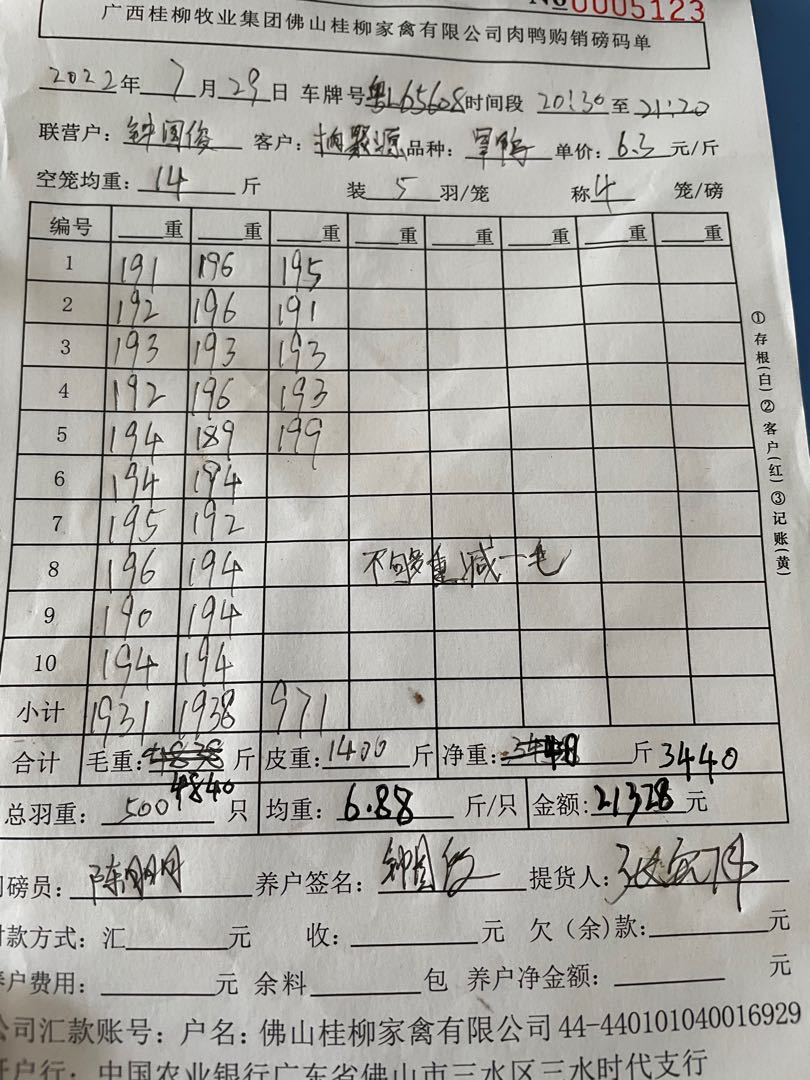 No 0005123
广西桂柳牧业集团佛山桂柳家禽有限公司肉鸭购销磅码单
2022年 7月29日 车牌号粤L65608时间段 20:30至21:20
联营户：钟国俊 客户：聚源品种：鸭 单价：6.3元/斤
空笼均重：14斤 装5羽/笼 称4笼/磅
编号 重 重 重 重 重 重 重 重
1 191 196 195
2 192 196 191
3 193 193 193
4 192 196 193
5 194 189 199
6 194 194
7 195 192
8 196 194 不够重减一毛
9 190 194
10 194 194
小计 1931 1938 971
合计 毛重：4838斤 皮重：1400斤 净重：斤3440
4840
总羽重：500只 均重：6.88斤/只 金额：21328元
磅员：陈明月 养户签名：钟国俊 提货人：
付款方式：汇元 收：元 欠（余）款：元
养户费用：元 余料包 养户净金额：元
公司汇款账号：户名：佛山桂柳家禽有限公司44-440101040016929
开户行：中国农业银行广东省佛山市三水区三水时代支行
①存根(白)②客户(红)③记账(黄)